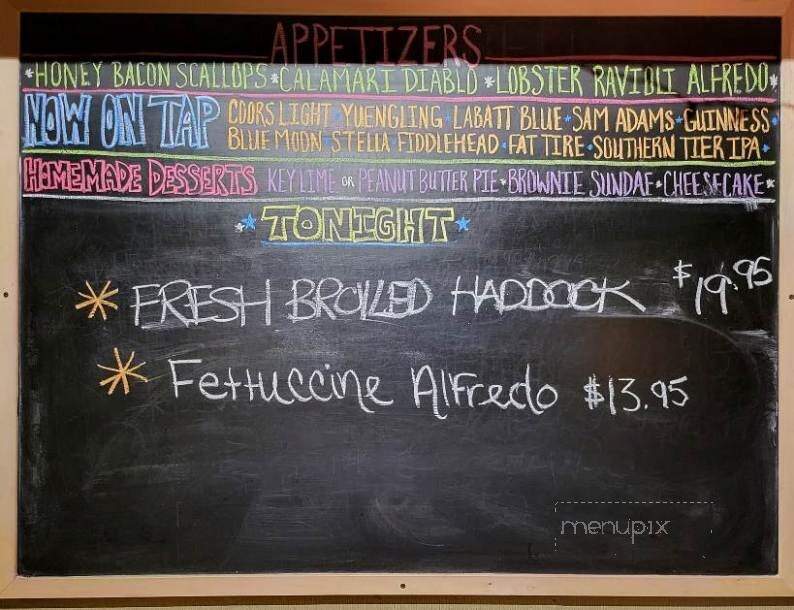 APPETIZERS
*HONEY BACON SCALLOPS*CALAMARI DIABLO *LOBSTER RAVIOLI ALFREDO*
NOW ON TAP COORS LIGHT*YUENGLING*LABATT BLUE*SAM ADAMS*GUINNESS*
BLUE MOON*STELLA FIDDLEHEAD*FAT TIRE*SOUTHERN TIER IPA*
HOMEMADE DESSERTS KEY LIME OR PEANUT BUTTER PIE*BROWNIE SUNDAE*CHEESECAKE*
*TONIGHT*
* FRESH BROILED HADDOCK $19.95
* Fettuccine Alfredo $13.95
menupix